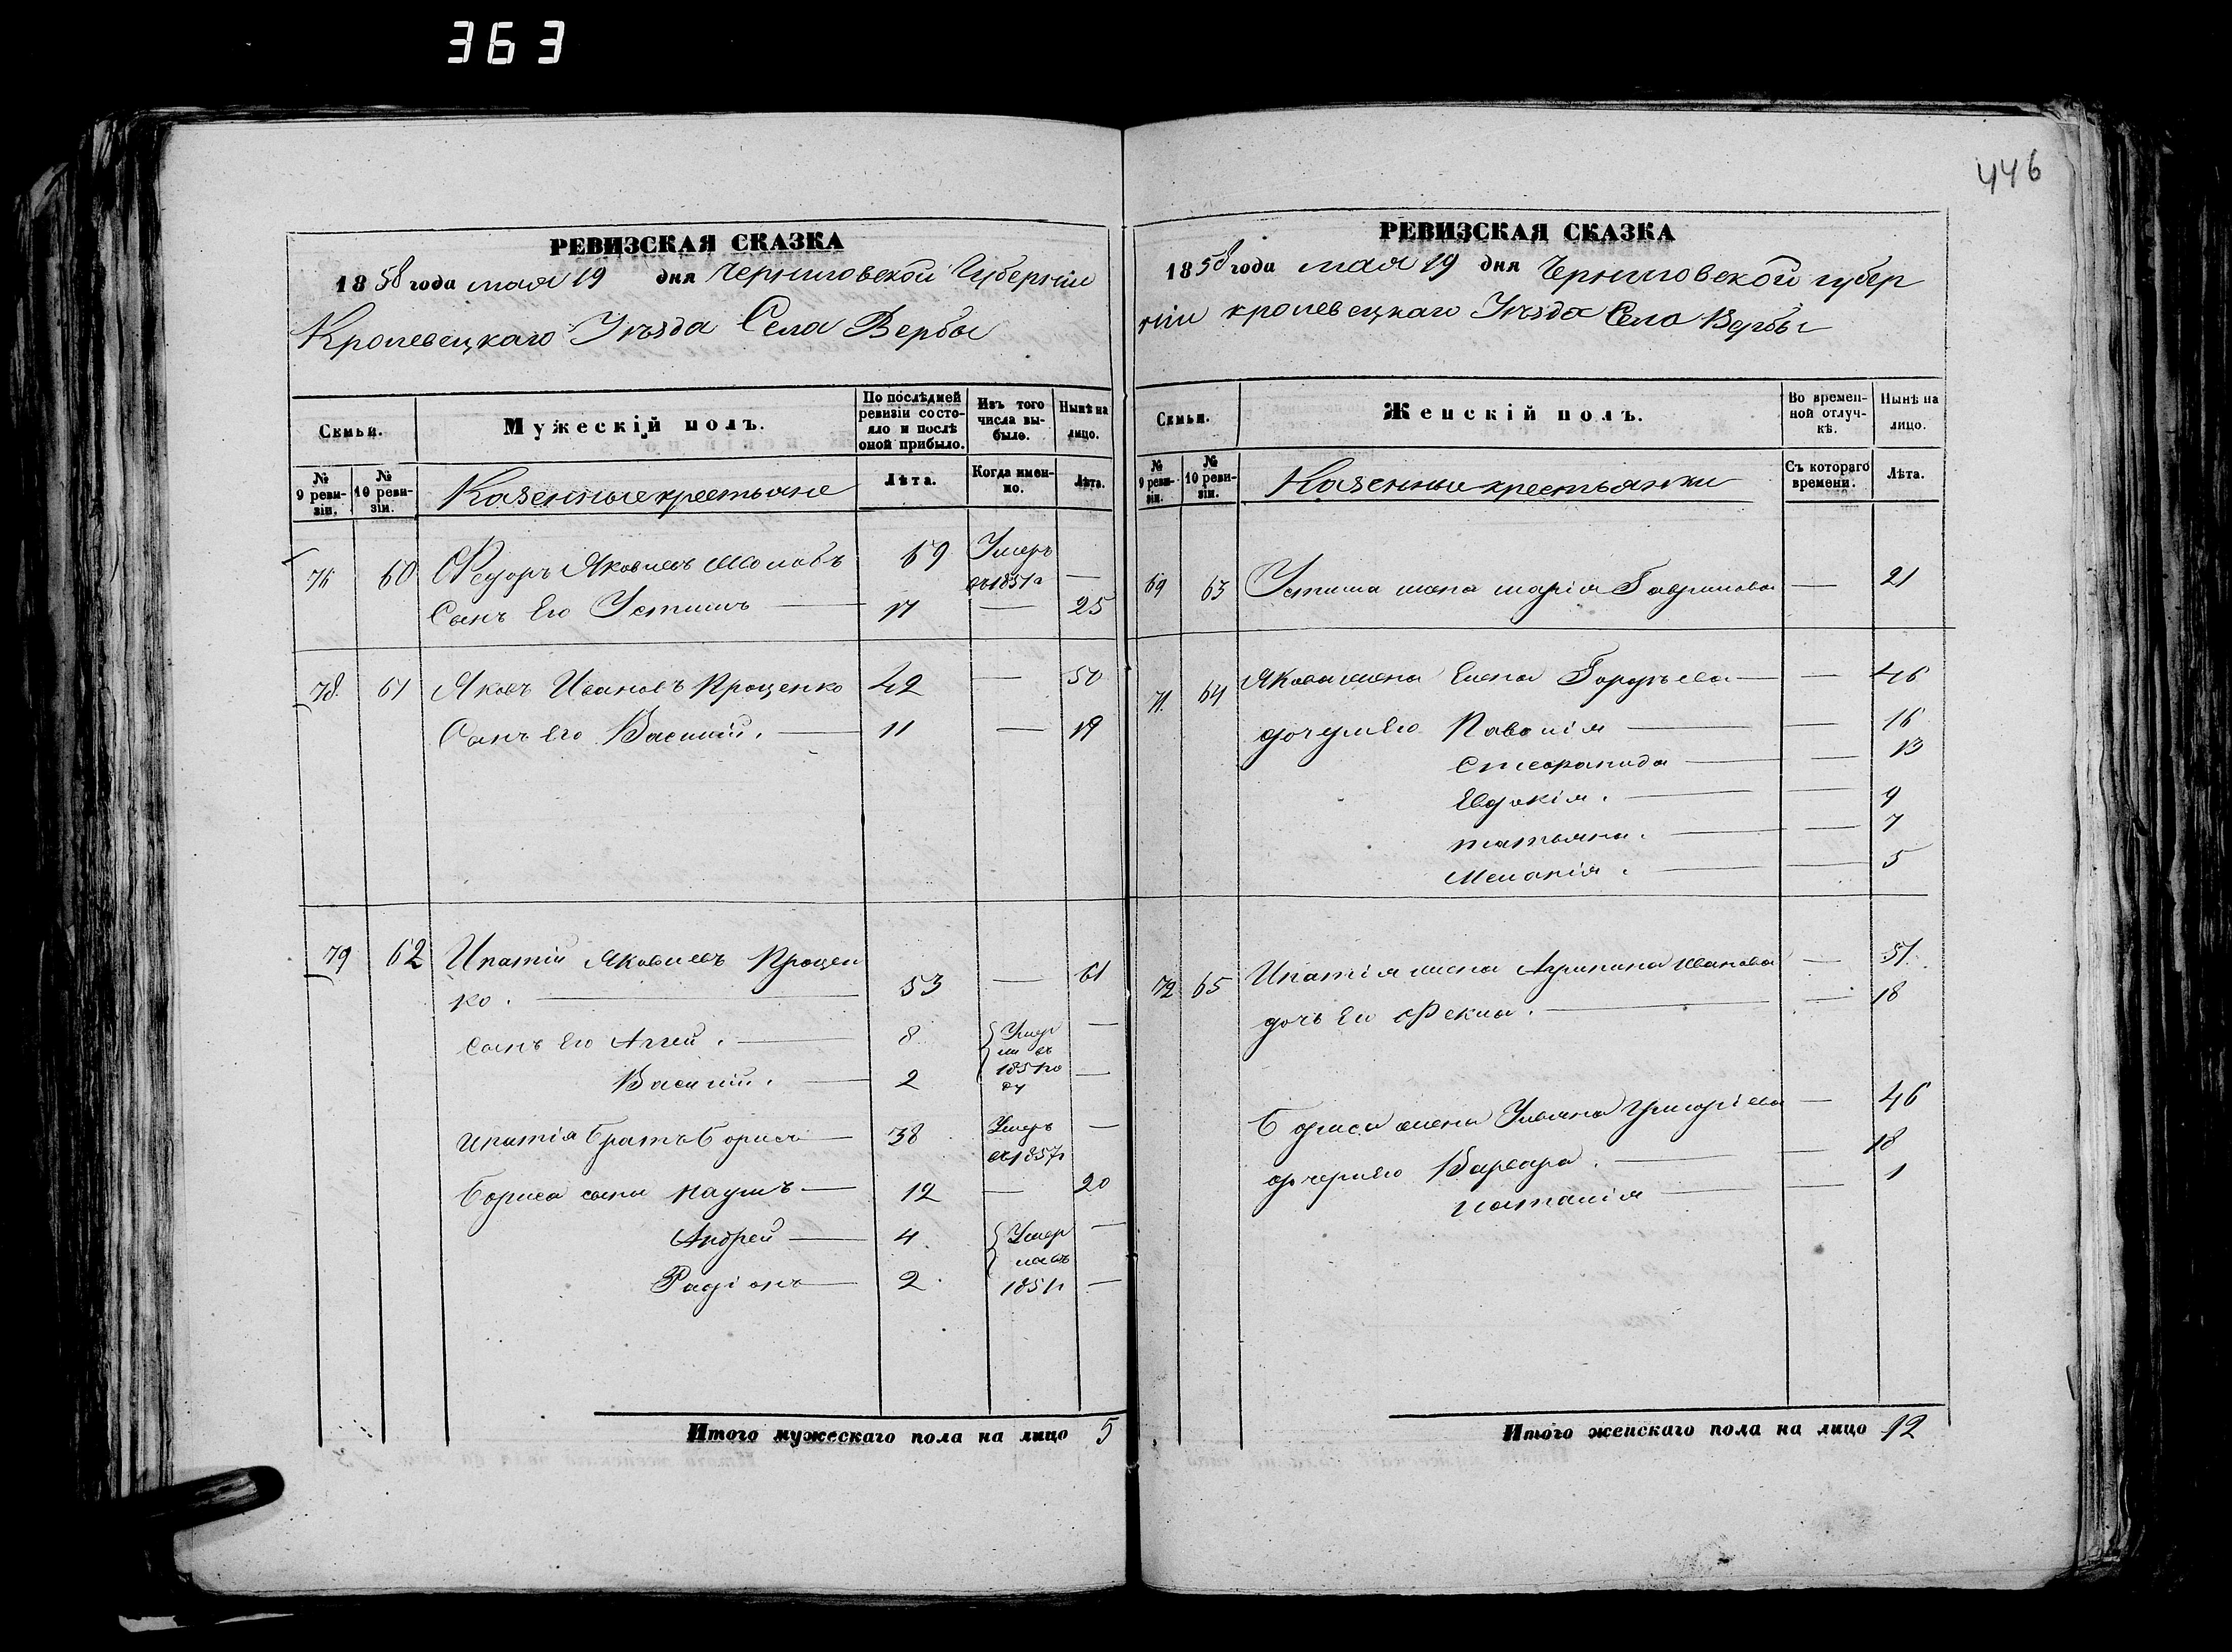 363
446
РЕВИЗСКАЯ СКАЗКА
1858 года мая 19 дня Черниговской Губерніи
Кролевецкаго Уѣзда Села Вербы
Семьи.
Мужескій полъ.
По послѣдней ревизіи состояло и послѣ оной прибыло.
Изъ того числа выбыло.
Нынѣ на лицо.
№ 9 ревизіи.
№ 10 ревизіи.
Казенные крестьяне
Лѣта.
Когда именно.
Лѣта.
76 60 Федоръ Яковлевъ 69 Умеръ въ 1851 г —
Сынъ Его Устинъ — 17 — 25
78. 61 Яковъ Ивановъ Проценко 42 — 50
Сынъ Его Василій. — 11 — 19
79 62 Ипатій Яковлевъ Процен
ко. — 53 — 61
Сынъ Его Аггей. — 8 Умер —
ли въ
Василій. — 2 1851 го —
ду
Ипатія братъ Борисъ — 38 Умеръ —
въ 1857 г
Бориса сыны Наумъ — 12 — 20
Андрей — 4. Умер —
ли въ
Радіонъ — 2. 1851 г —
Итого мужескаго пола на лицо 5
РЕВИЗСКАЯ СКАЗКА
1858 года мая 19 дня Черниговской губер
ніи кролевецкаго Уѣзда Села Вербы
Семьи.
Женскій полъ.
Во временной отлучкѣ.
Нынѣ на лицо.
№ 9 ревизіи.
№ 10 ревизіи.
Казенные крестьянки
Съ котораго времени.
Лѣта.
69 63 Устина жена марія Гаврилова — 21
71. 64 Якова жена Елена Гордѣева — — 46
дочери Его Павлнія — — 16
Степанида — — 13
Евдокія. — — 9
татьяна. — — 7
Меланія. — — 5
72 65 Ипатія жена Агрипина Иванова — 51.
дочь Его Фекла. — — 18
Бориса жена Ульяна Григоріева — 46
дочери Его Варвара. — — 18
наталія — — 1
Итого женскаго пола на лицо 12